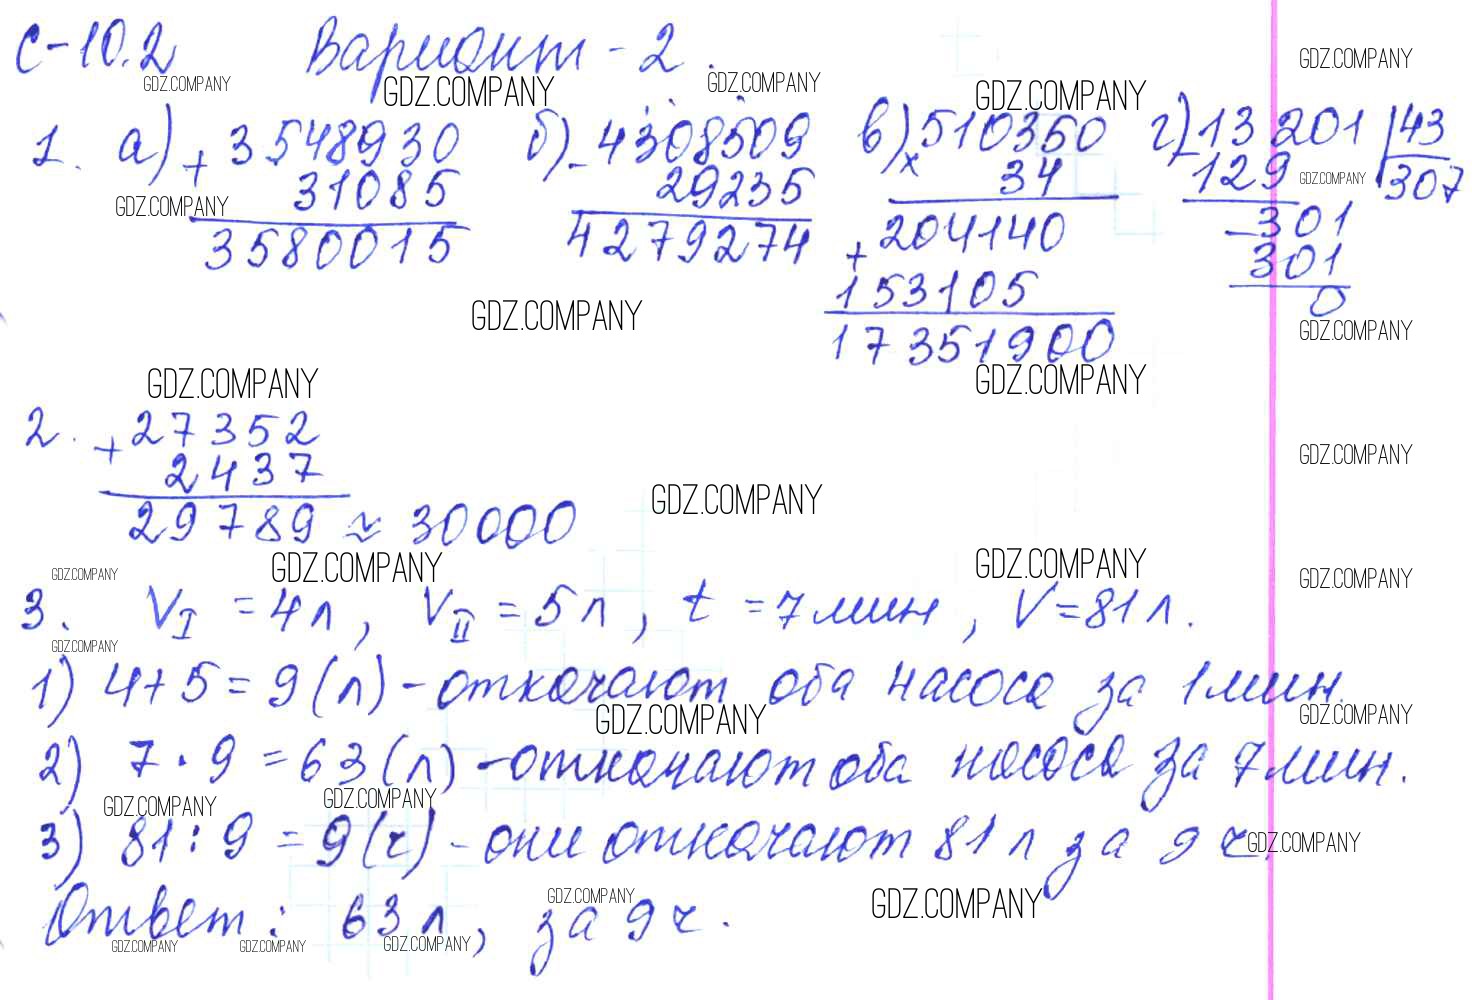 С-10.2 Вариант - 2.
GDZ.COMPANY GDZ.COMPANY GDZ.COMPANY GDZ.COMPANY GDZ.COMPANY
1. а) + 3548930 б) - 4308509 в) × 510350 г) - 13201 | 43
31085 29235 34 129 307
GDZ.COMPANY GDZ.COMPANY
3580015 4279274 + 204140 - 301
153105 301
GDZ.COMPANY 17351900 0
GDZ.COMPANY
GDZ.COMPANY GDZ.COMPANY
2. + 27352
2437
GDZ.COMPANY
29789 ≈ 30000
GDZ.COMPANY
GDZ.COMPANY GDZ.COMPANY GDZ.COMPANY GDZ.COMPANY
3. V_I = 4 л, V_II = 5 л, t = 7 мин, V = 81 л.
GDZ.COMPANY
1) 4 + 5 = 9 (л) - откачают оба насоса за 1 мин.
GDZ.COMPANY GDZ.COMPANY
2) 7 · 9 = 63 (л) - откачают оба насоса за 7 мин.
GDZ.COMPANY GDZ.COMPANY
3) 81 : 9 = 9 (ч) - они откачают 81 л за 9 ч.
GDZ.COMPANY
GDZ.COMPANY GDZ.COMPANY
Ответ: 63 л, за 9 ч.
GDZ.COMPANY GDZ.COMPANY GDZ.COMPANY